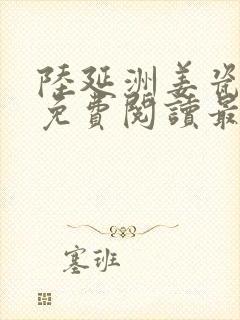 陸延洲姜瓷
免費閱讀最
塞班